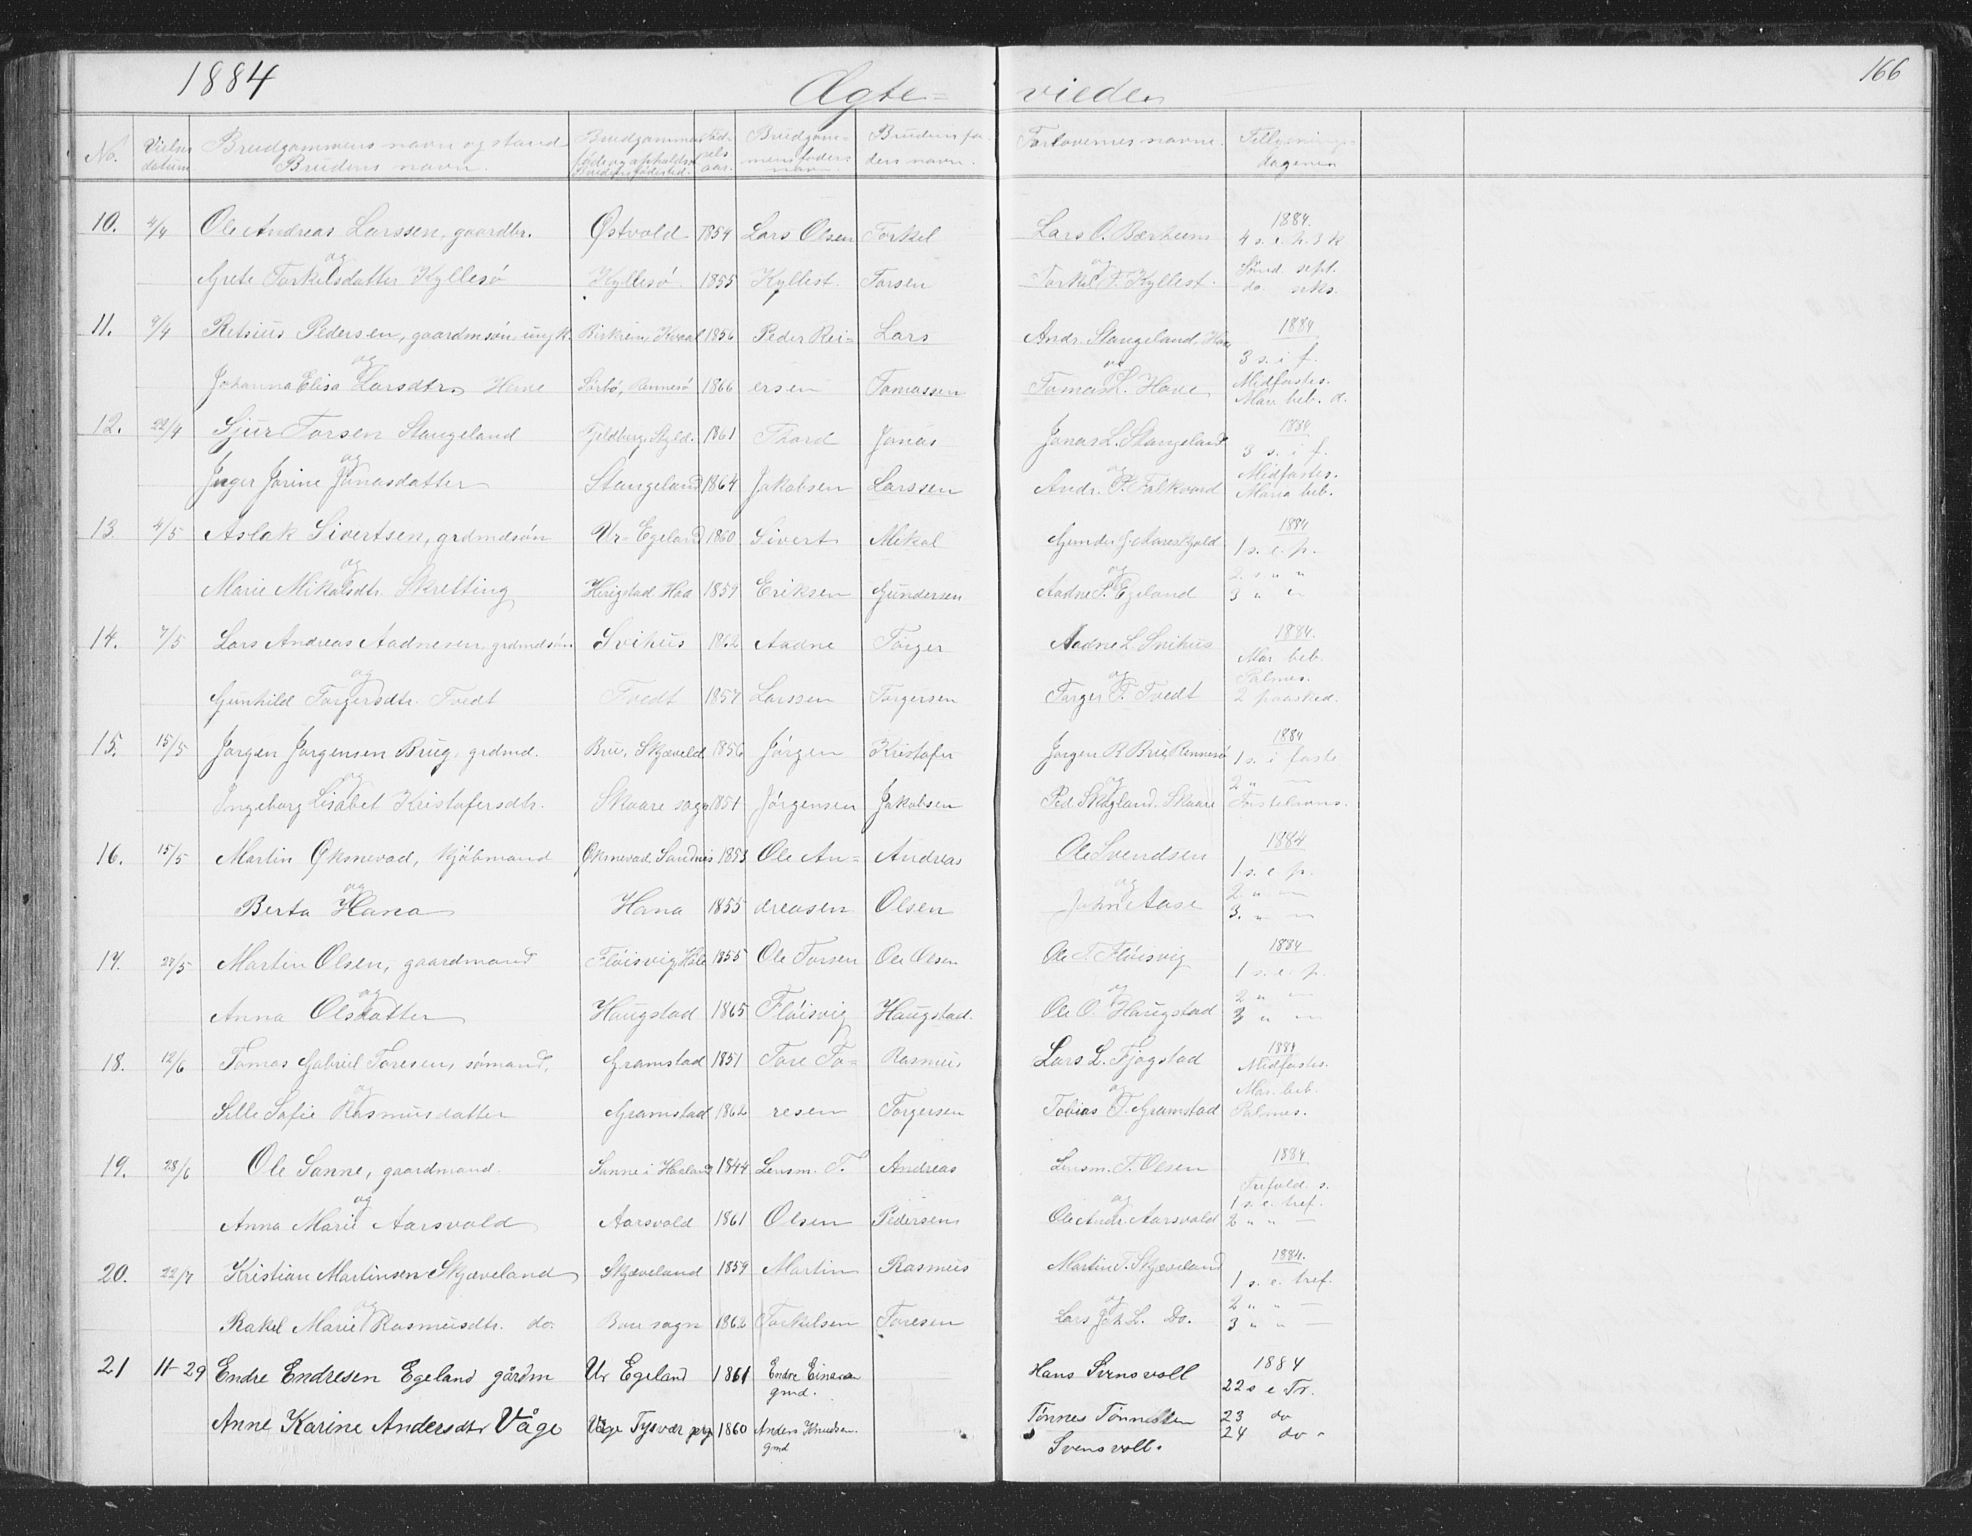 1884
Ægte= viede
166
No. Vielses datum Brudgommens navn og stand Brudens navn. Brudgommens føde og opholdsst. Brudens fødested. Fødselsaar. Brudgommens faders navn. Brudens faders navn. Forlovernes navne. Tillysningsdagene
10. 4/4 Ole Andreas Larssen, gaardbr. Østvold 1854 Lars Olsen Torkel Lars O. Bærheim 1884. 4 s. e. h. 3 k
og og
Grete Torkelsdatter Kyllesø Kyllesø 1855 Kyllest. Torsen Torkel T. Kyllest. Sønd. sept. do. seks.
11. 9/4 Retsius Pedersen, gaardmsøn, ungk. Birkrem, Kvaal 1856 Peder Rei- Lars Andr. Stangeland, Have 1884 3 s. i f.
og og
Johanna Elisa Larsdtr. Have Sørbø, Rennesø 1866 ersen Tomassen Tomas L. Have Midfastes. Mar. beb. d.
12. 22/4 Sjur Torsen Stangeland Fjeldberg, Skjold. 1861 Toord Jonas Jonas L. Stangeland 1884 3 s. i f.
og og
Inger Jorine Jonasdatter Stangeland 1864 Jakobsen Larssen Andr. P. Folkvord Midfastes. Maria beb.
13 4/5 Aslak Sivertsen, grdmdsøn Ur-Egeland 1860 Sivert Mikal Gunder G. Aareskjold 1884 1 s. e. p.
og og
Marie Mikalsdtr. Skretting Herigstad Haa 1859 Eriksen Gundersen Aadne T. Egeland 2 s " " 3 " "
14. 7/5 Lars Andreas Aadnesen, grdmdsøn Svihus 1862 Aadne Torger Aadne L. Svihus 1884. Mar. beb.
og og
Gunhild Torgersdtr. Tvedt Tvedt 1857 Larssen Torgersen Torger T. Tvedt Palmes. 2 paasked.
15. 15/5 Jørgen Jørgensen Brug, grdmd. Bru, Skjæveld 1856 Jørgen Kristofer Jørgen R Bru Rennesø 1884 1 s. i faste
og og
Ingeborg Lisabet Kristofersdtr. Skaare sogn 1851 Jørgensen Jakobsen Ped Skogland. Skaare 2 "
16. 15/5 Martin Øksnevad, kjøbmand Øksnevad Sandnes 1853 Ole An= Andreas Ole Svendsen 1884 1 s. e. p.
og og
Berta Hana Hana 1855 dreasen Olsen John Aase 2 " " 3. " "
17. 27/5 Martin Olsen, gaardmand Fløisvig, Høle 1855 Ole Torsen Ole Olsen Ole T. Fløisvig 1884 1 s. e. p.
og og
Anna Olsdatter Haugstad 1865 Fløisvig Haugstad. Ole O. Haugstad 2 " " 3 " "
18. 12/6 Tomas Gabriel Toresen, sømand. Gramstad 1851 Tore To= Rasmus Lars L. Fjogstad 1884 Midfastes.
og og
Sille Sofie Rasmusdatter Gramstad 1862 resen Torgersen Tobias T. Gramstad Mar. beb. Palmes.
19. 28/6 Ole Sanne, gaardmand. Sanne i Høiland 1844 Lensm. T. Andreas Lensm. T. Olsen 1884 Trefold. s.
og og
Anna Marie Aarsvold Aarsvold 1861 Olsen Pedersen Ole Andr. Aarsvold 1 s. e. tref. 2 " " —
20. 22/7 Kristian Martinsen Skjæveland Skjæveland 1859 Martin Rasmus Martin T. Skjæveland 1884. 1 s. e. tref.
og og
Rakel Marie Rasmusdtr. do. Bore sogn 1862 Torkelsen Toresen Lars L. Do. 2 " " — 3 " " —
21 11-29 Endre Endresen Egeland gårdm Ur Egeland 1861 Endre Einersen gmd. Hans Svensvoll 1884 22 s e Tr.
Anne Karine Andersdtr Våge Våge Tysvær prg 1860 Anders Knudsen gmd Tønnes Tønnessen 23 do
Svensvoll. 24 do -